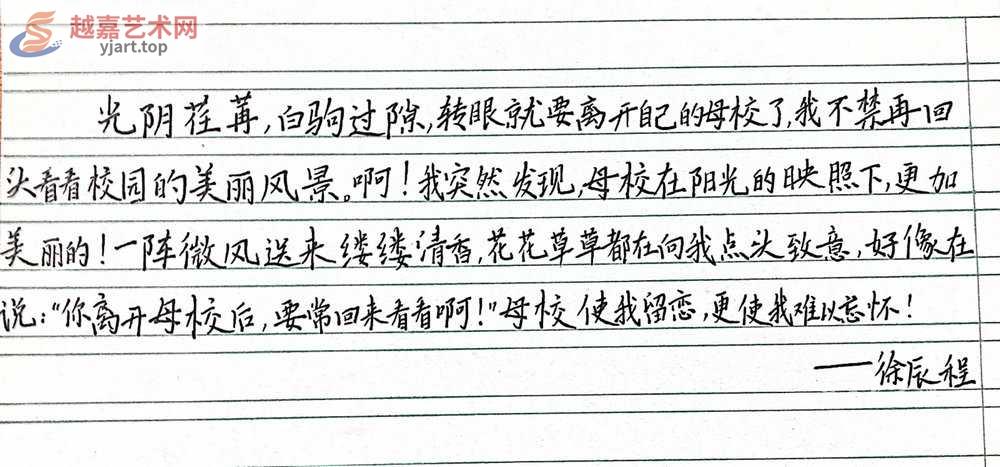 越嘉艺术网
yjart.top
光阴荏苒,白驹过隙,转眼就要离开自己的母校了,我不禁再回
头看看校园的美丽风景。啊!我突然发现,母校在阳光的映照下,更加
美丽的!一阵微风送来缕缕清香,花花草草都在向我点头致意,好像在
说:“你离开母校后,要常回来看看啊!”母校使我留恋,更使我难以忘怀!
——徐辰程